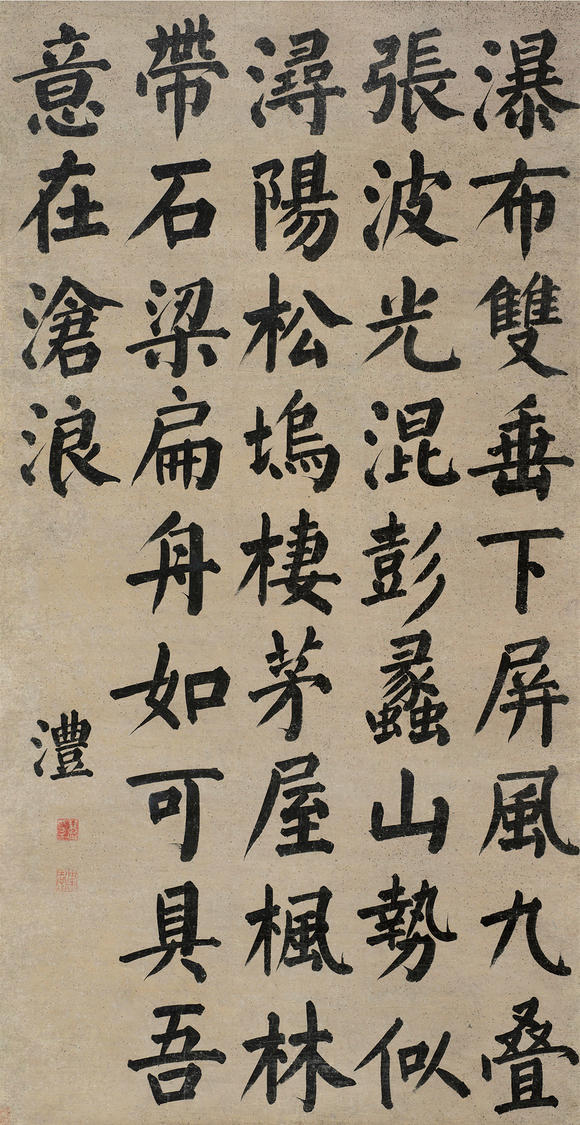 瀑布雙垂下屏風九叠
張波光混彭蠡山勢似
潯陽松塢棲茅屋楓林
帶石梁扁舟如可具吾
意在滄浪
澧